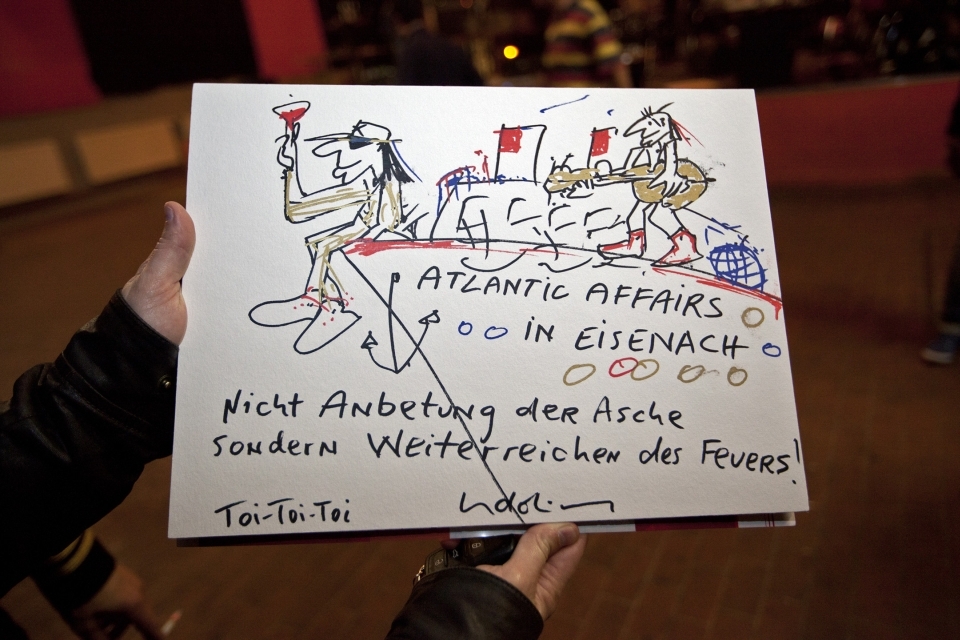 ATLANTIC AFFAIRS
IN EISENACH
Nicht Anbetung der Asche
sondern Weiterreichen des Feuers!
Toi-Toi-Toi
Udo